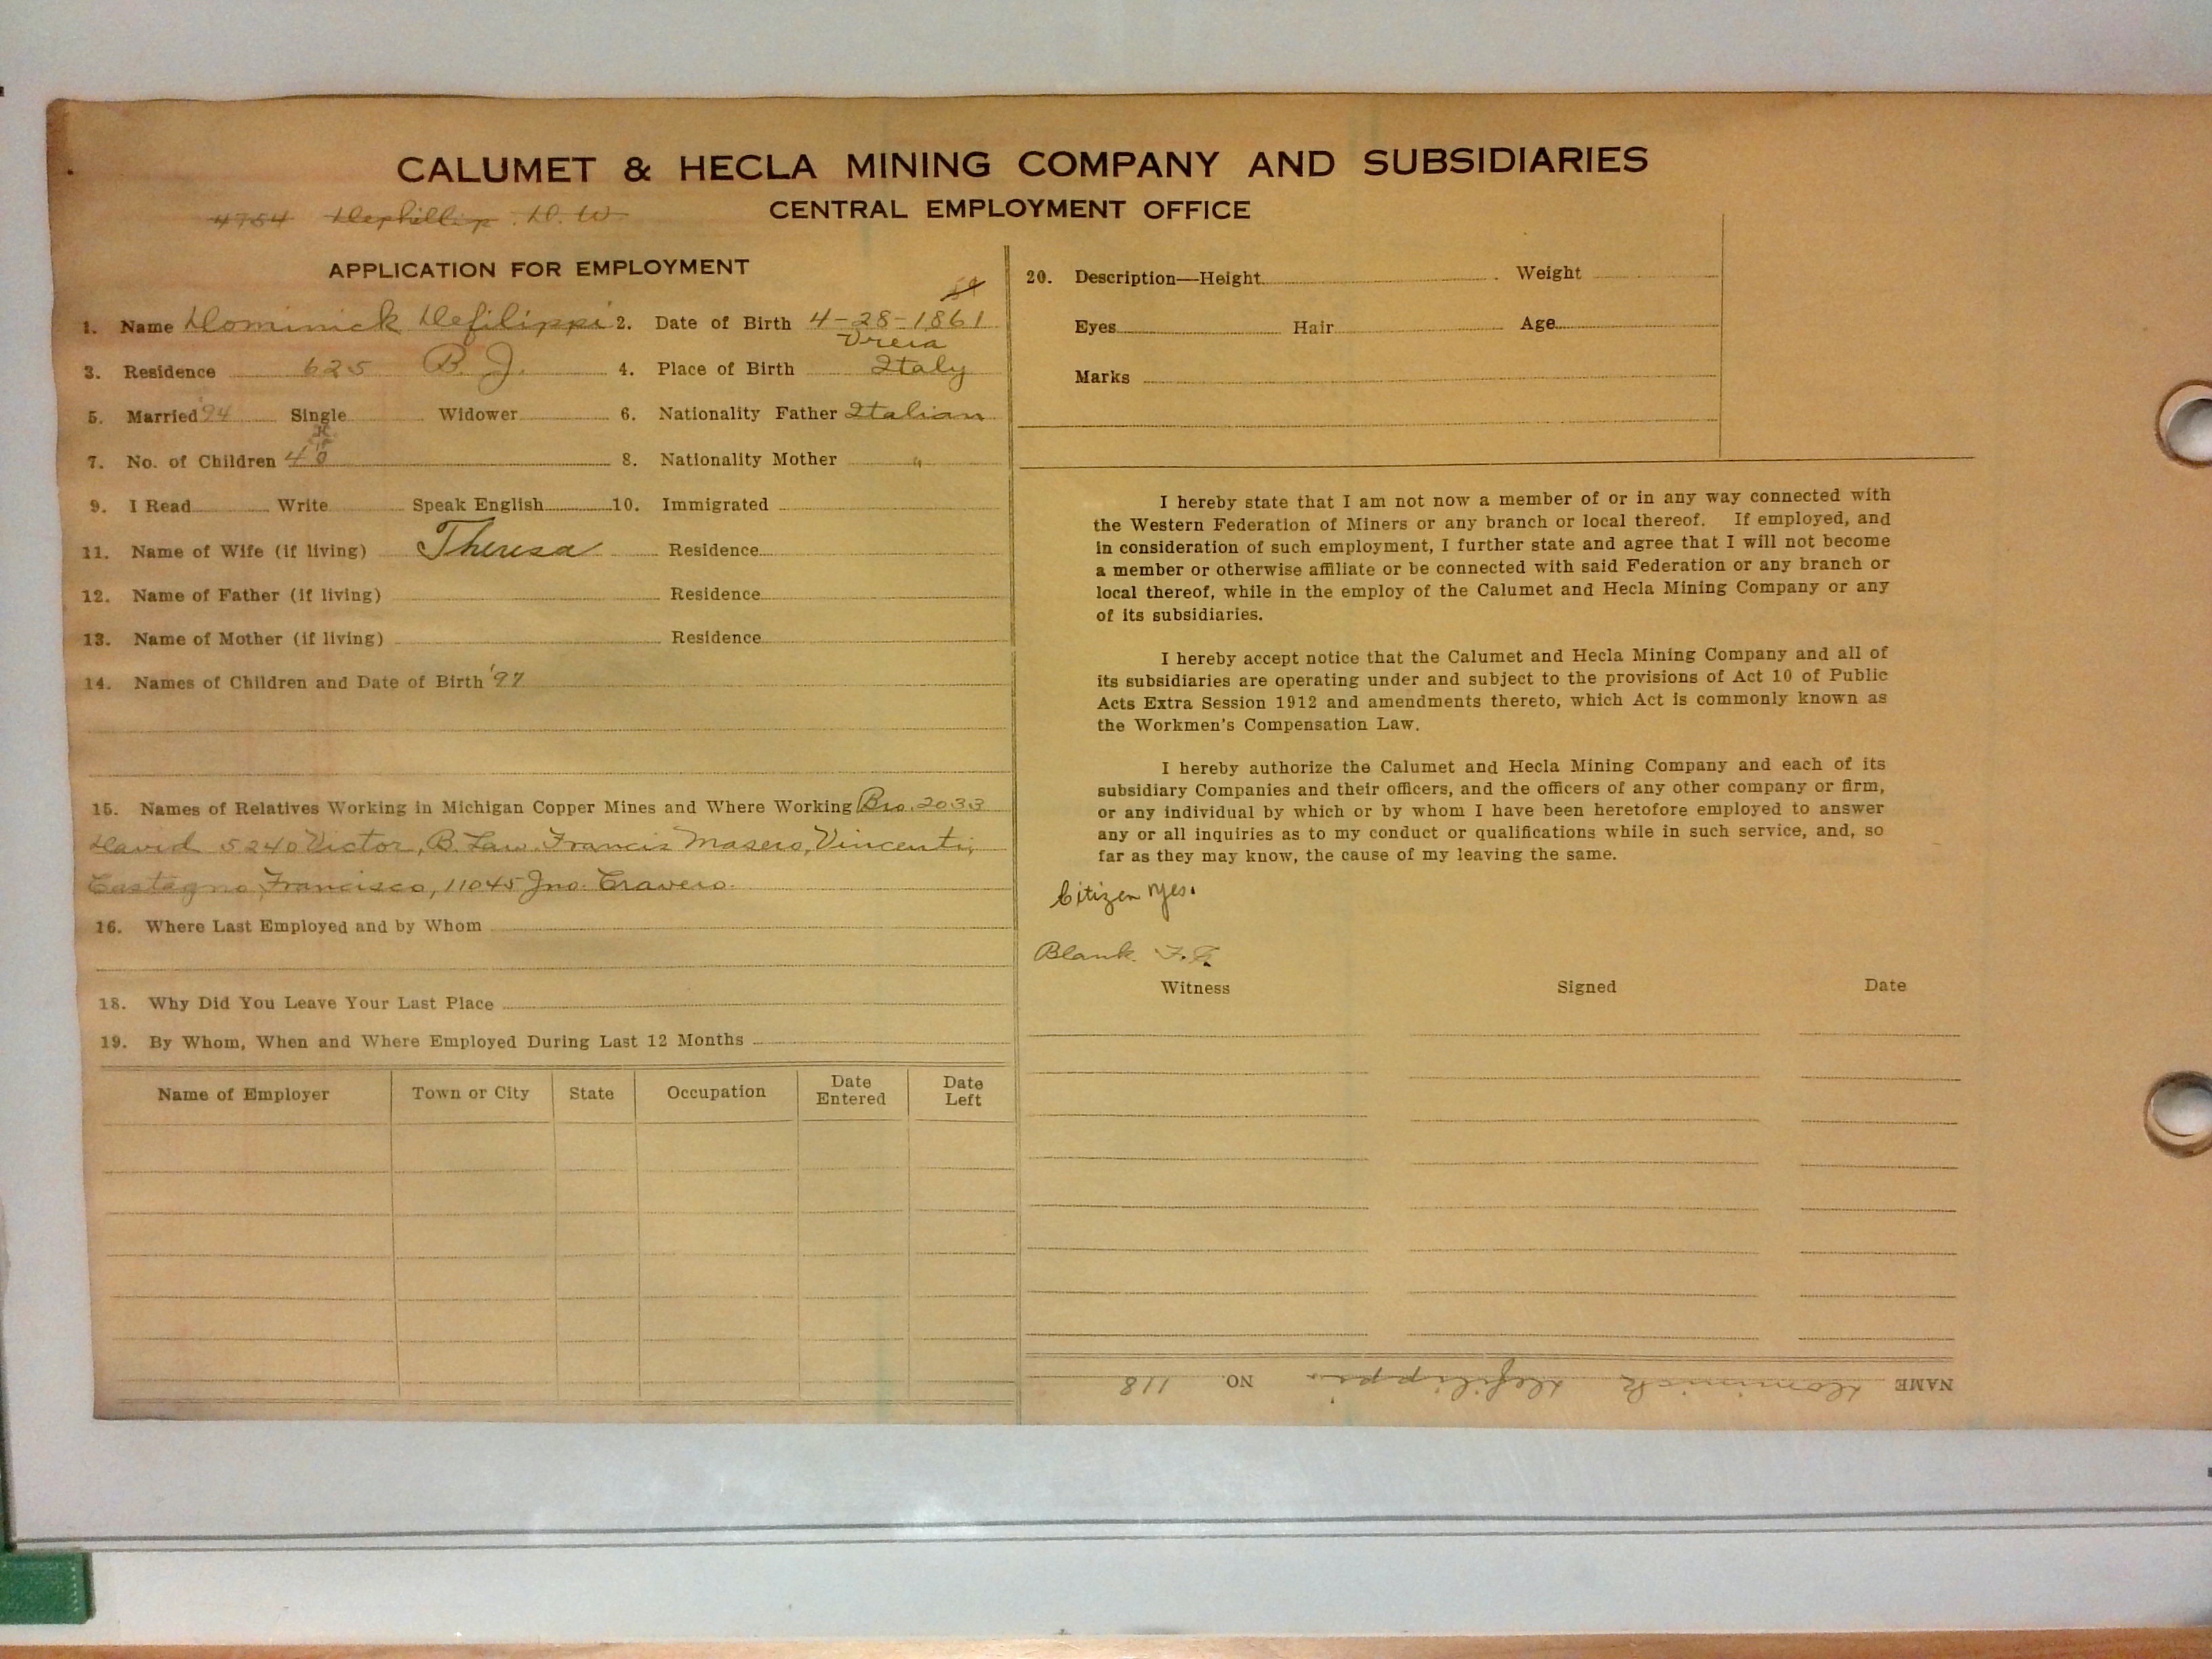 CALUMET & HECLA MINING COMPANY AND SUBSIDIARIES
4754 Dephillip. D. W.
CENTRAL EMPLOYMENT OFFICE
APPLICATION FOR EMPLOYMENT
1. Name Dominick Defilippi 2. Date of Birth 4-28-1861
3. Residence 625 B. J. 4. Place of Birth Italy
5. Married '94 Single Widower 6. Nationality Father Italian
7. No. of Children 8. Nationality Mother "
9. I Read Write Speak English 10. Immigrated
11. Name of Wife (if living) Theresa Residence
12. Name of Father (if living) Residence
13. Name of Mother (if living) Residence
14. Names of Children and Date of Birth '97
15. Names of Relatives Working in Michigan Copper Mines and Where Working Bro. 2033
David 5240 Victor, B. Law. Francis Masero, Vincenti,
Castagno Francisco, 11045 Jno. Cravero.
16. Where Last Employed and by Whom
18. Why Did You Leave Your Last Place
19. By Whom, When and Where Employed During Last 12 Months
Name of Employer Town or City State Occupation Date Entered Date Left
20. Description—Height Weight
Eyes Hair Age
Marks
I hereby state that I am not now a member of or in any way connected with
the Western Federation of Miners or any branch or local thereof. If employed, and
in consideration of such employment, I further state and agree that I will not become
a member or otherwise affiliate or be connected with said Federation or any branch or
local thereof, while in the employ of the Calumet and Hecla Mining Company or any
of its subsidiaries.
I hereby accept notice that the Calumet and Hecla Mining Company and all of
its subsidiaries are operating under and subject to the provisions of Act 10 of Public
Acts Extra Session 1912 and amendments thereto, which Act is commonly known as
the Workmen's Compensation Law.
I hereby authorize the Calumet and Hecla Mining Company and each of its
subsidiary Companies and their officers, and the officers of any other company or firm,
or any individual by which or by whom I have been heretofore employed to answer
any or all inquiries as to my conduct or qualifications while in such service, and, so
far as they may know, the cause of my leaving the same.
Citizen yes.
Blank
Witness Signed Date
NAME Dominick Defilippi NO. 118